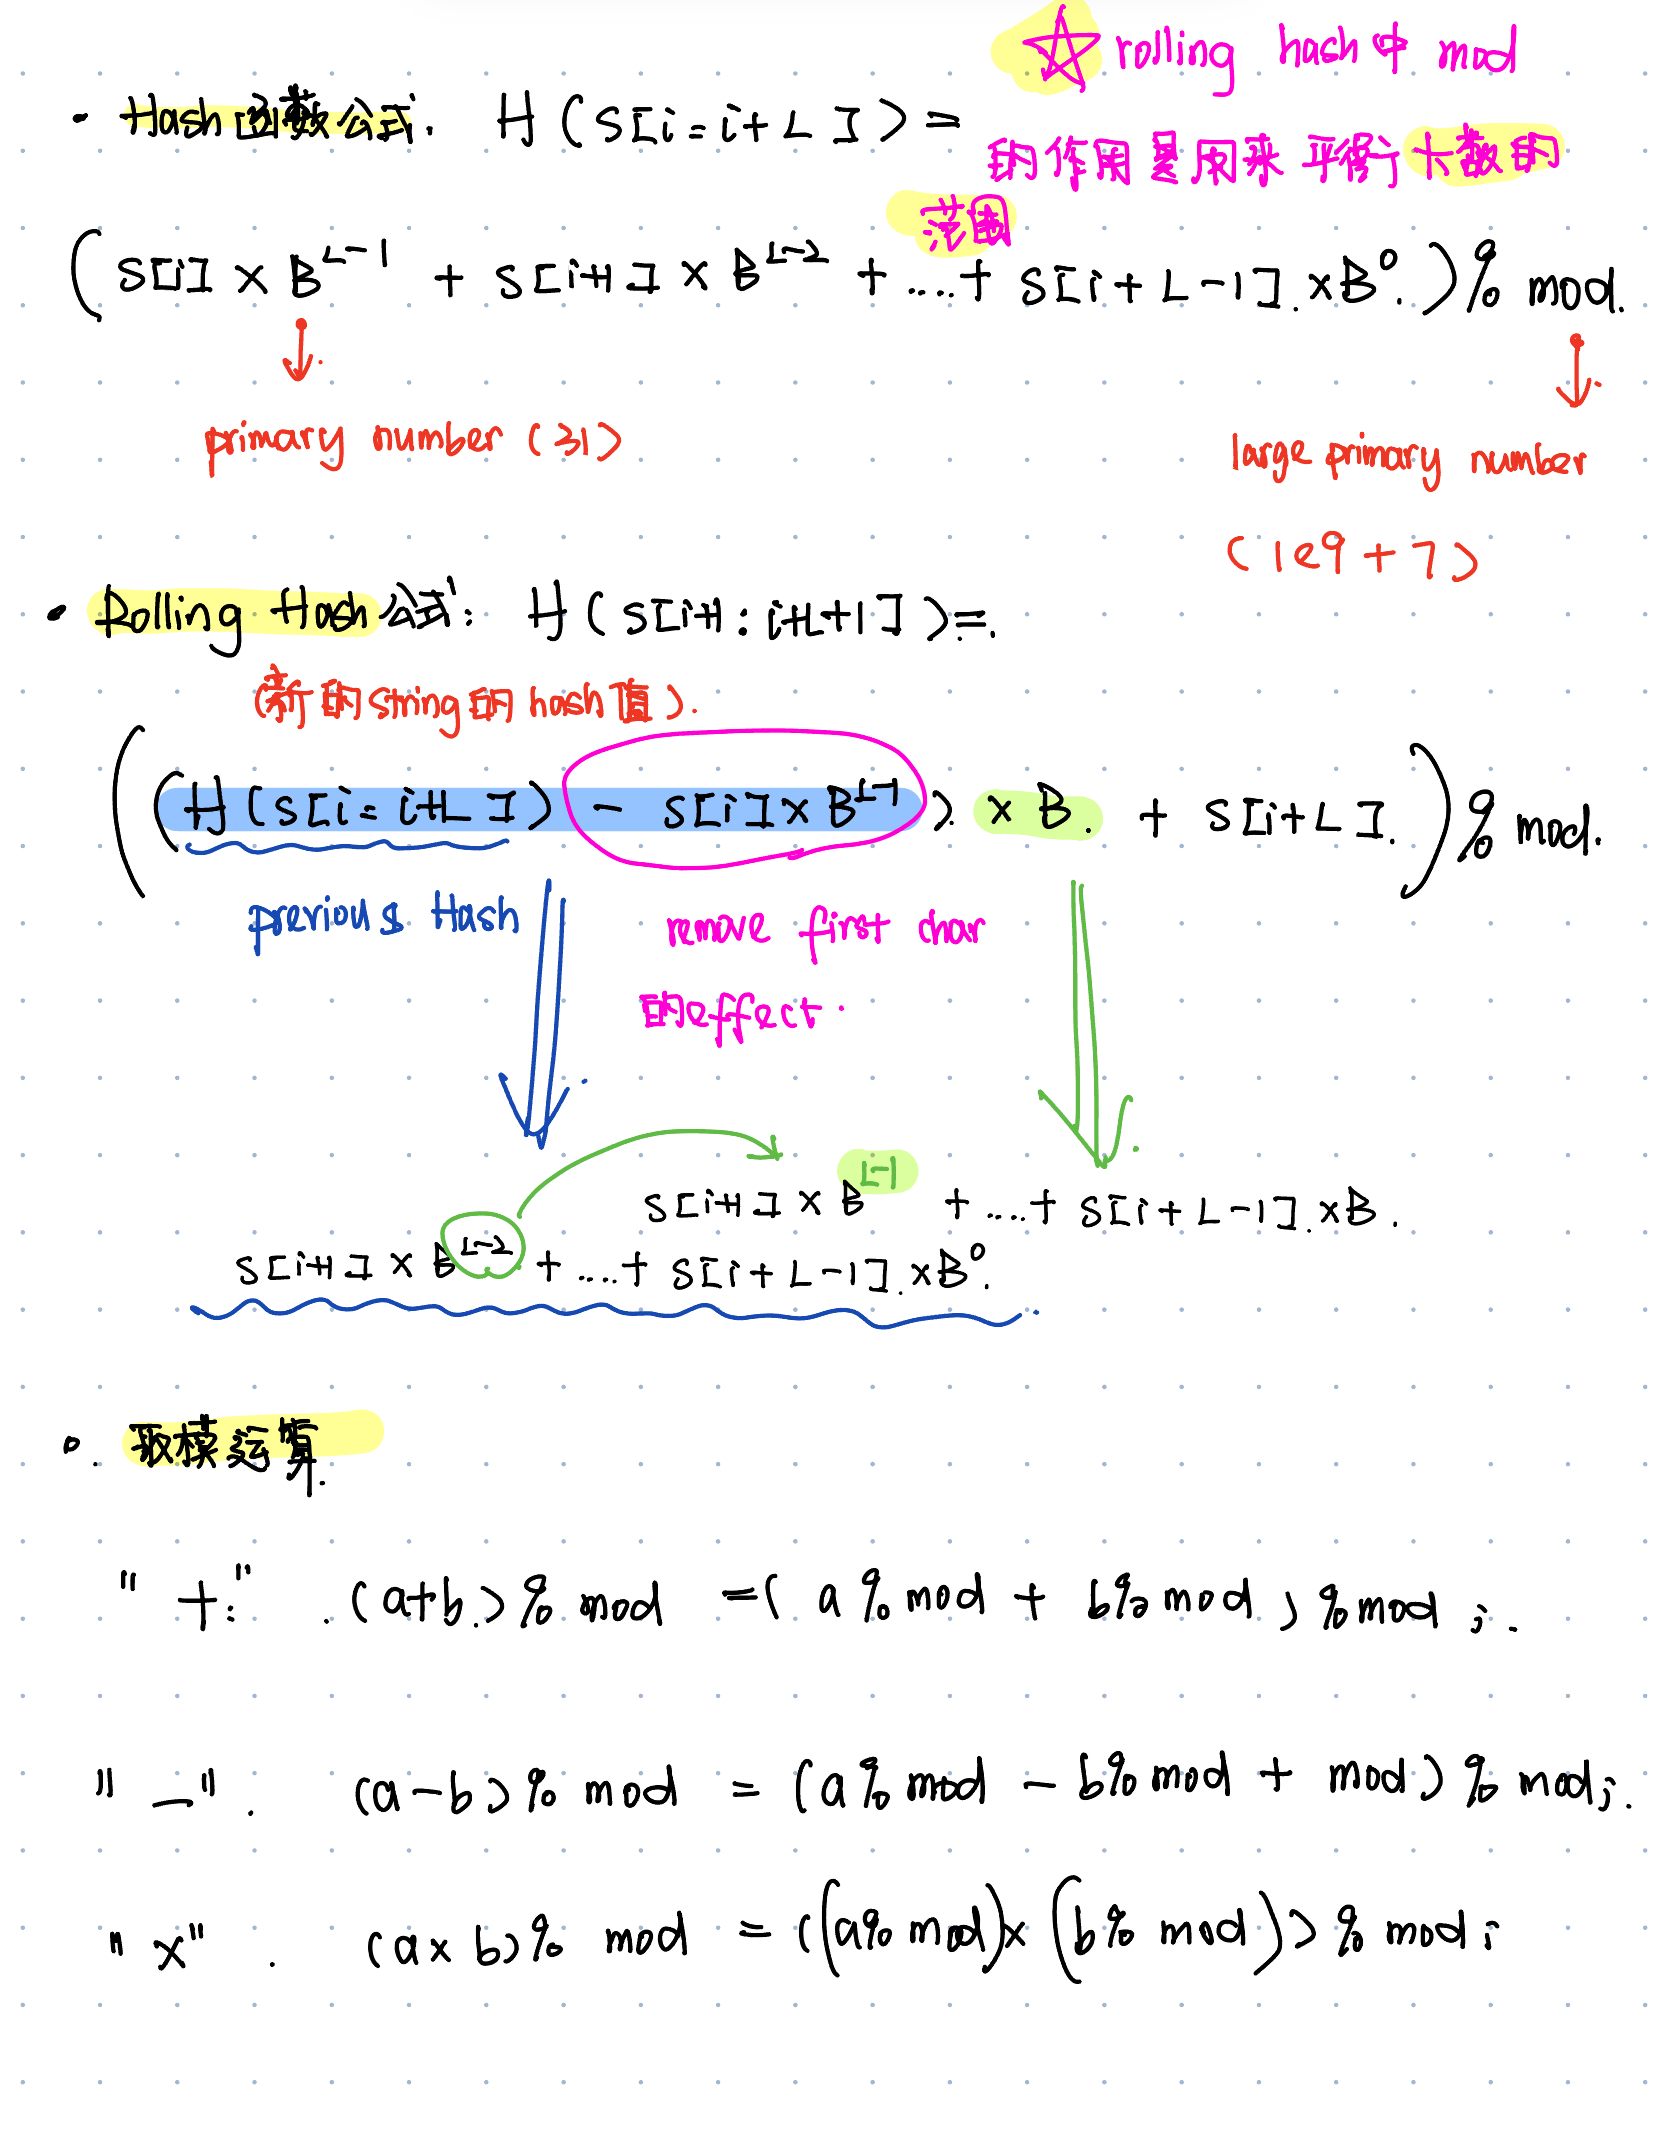 ☆ rolling hash 中 mod
的作用是用来平衡大数的
范围
· Hash函数公式. H(S[i=i+L])=
(S[i] × B^L-1 + S[i+1] × B^L-2 + ....+ S[i+L-1].×B^0.)% mod.
primary number (31)
large primary number
(1e9+7)
· Rolling Hash公式: H(S[i+1:i+L+1])=.
(新的string的hash值).
((H(S[i=i+L]) - S[i]×B^L-1).×B. + S[i+L].)% mod.
previous Hash
remove first char
的effect.
S[i+1] × B^L-1 + ....+ S[i+L-1].×B.
S[i+1] × B^L-2 + ....+ S[i+L-1].×B^0.
取模运算.
"+:" .(a+b.)% mod =( a % mod + b% mod )%mod ;.
"-". (a-b)% mod = (a% mod - b% mod + mod)% mod;.
"x". (a×b)% mod = ((a% mod)×(b% mod))% mod;